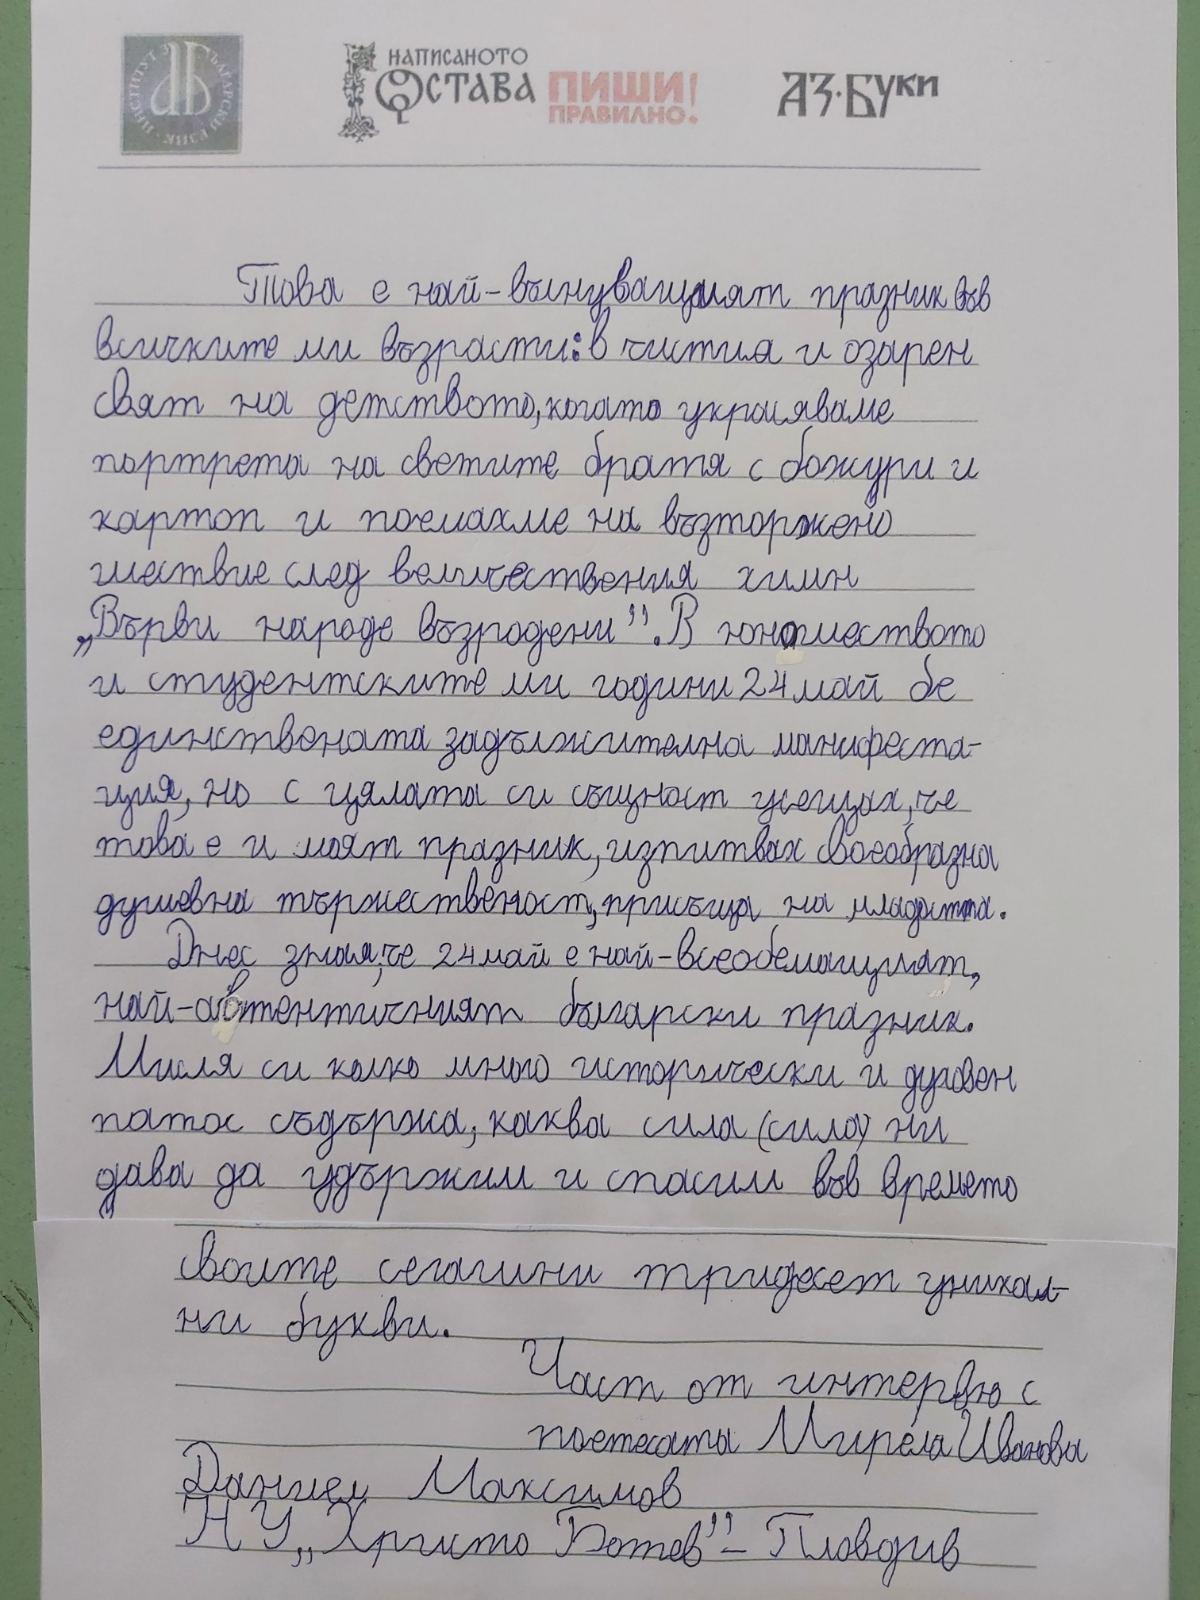 ИНСТИТУТ ЗА БЪЛГАРСКИ ЕЗИК
НАПИСАНОТО
ОСТАВА
ПИШИ
ПРАВИЛНО!
АЗ·БУКИ
Това е най-вълнуващият празник във
всичките ми възрасти: в чистия и озарен
свят на детството, когато украсяваме
портрета на светите братя с божури и
картоп и поемахме на възторжено
шествие след величествения химн
„Върви народе възродени". В юношеството
и студентските ми години 24 май бе
единствената задължителна манифеста-
ция, но с цялата си същност усещах, че
това е и моят празник, изпитвах своеобразна
душевна тържественост, присъща на младостта.
Днес зная, че 24 май е най-всеобемащият,
най-автентичният български празник.
Мисля си колко много исторически и духовен
патос съдържа, каква сила (сила) ни
дава да удържим и спасим във времето
своите сегашни тридесет уникал-
ни букви.
Част от интервю с
поетесата Мирела Иванова
Даниел Максимов
НУ „Христо Ботев" - Пловдив